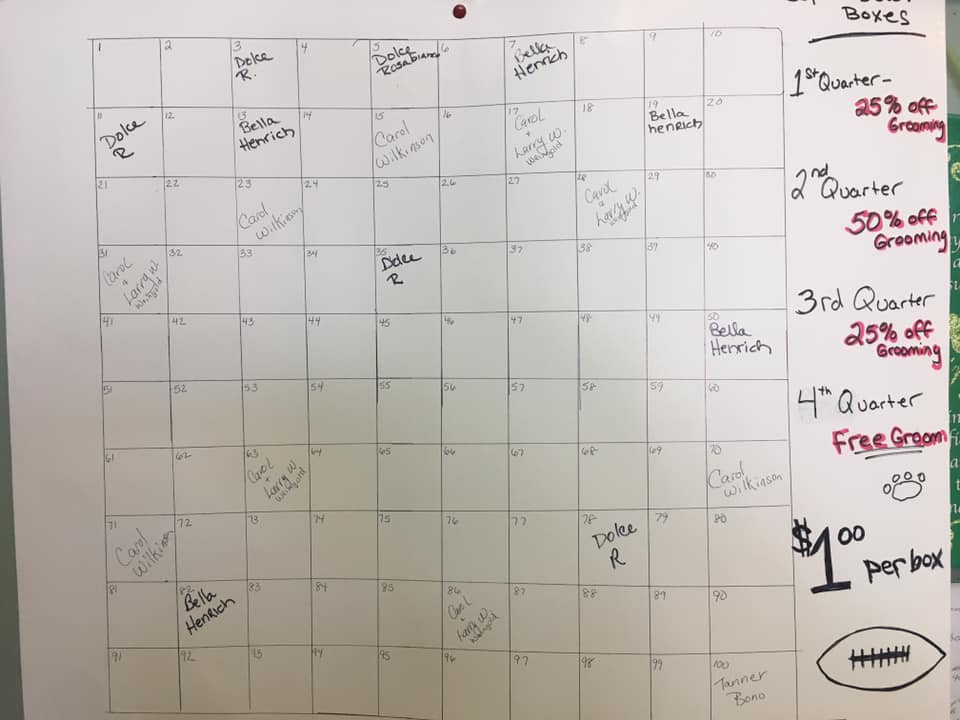 Boxes
1 2 3 4 5 6 7 8 9 10
Dolce
R.
Dolce
Rosabianca
Bella
Henrich
11 12 13 14 15 16 17 18 19 20
Dolce
R
Bella
Henrich
Carol
Wilkinson
Carol
+
Larry W.
Weingold
Bella
henrich
21 22 23 24 25 26 27 28 29 30
Carol
Wilkinson
Carol
+
Larry W.
Weingold
31 32 33 34 35 36 37 38 39 40
Carol
+
Larry W
Weingold
Dolce
R
41 42 43 44 45 46 47 48 49 50
Bella
Henrich
51 52 53 54 55 56 57 58 59 60
61 62 63 64 65 66 67 68 69 70
Carol
+
Larry W
Weingold
Carol
Wilkinson
71 72 73 74 75 76 77 78 79 80
Carol
Wilkinson
Dolce
R
81 82 83 84 85 86 87 88 89 90
Bella
Henrich
Carol
+
Larry W
Weingold
91 92 93 94 95 96 97 98 99 100
Tanner
Bono
1st Quarter-
25% off
Grooming
2nd Quarter
50% off
Grooming
3rd Quarter
25% off
Grooming
4th Quarter
Free Groom
$1.00
per box